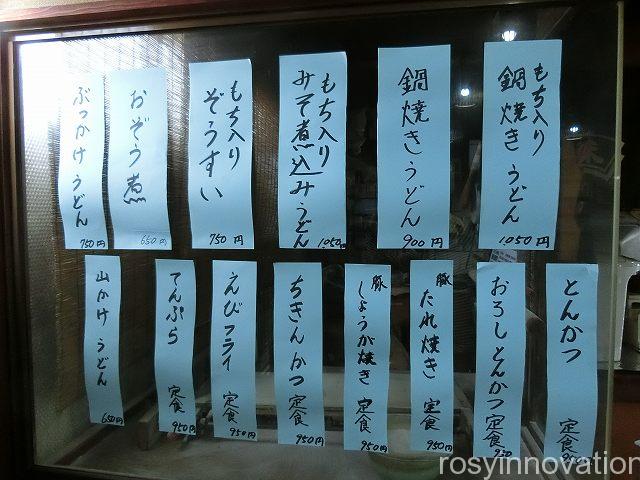 もち入り
鍋焼きうどん
1050円
鍋焼きうどん
900円
もち入り
みそ煮込みうどん
1050円
もち入り
ぞうすい
750円
おぞう煮
650円
ぶっかけうどん
750円
とんかつ
定食
おろしとんかつ定食
950
豚
たれ焼き
定食
950円
豚
しょうが焼き
定食
950円
ちきんかつ
定食
950円
えびフライ
定食
950円
てんぷら
定食
950円
山かけうどん
650円
rosyinnovation